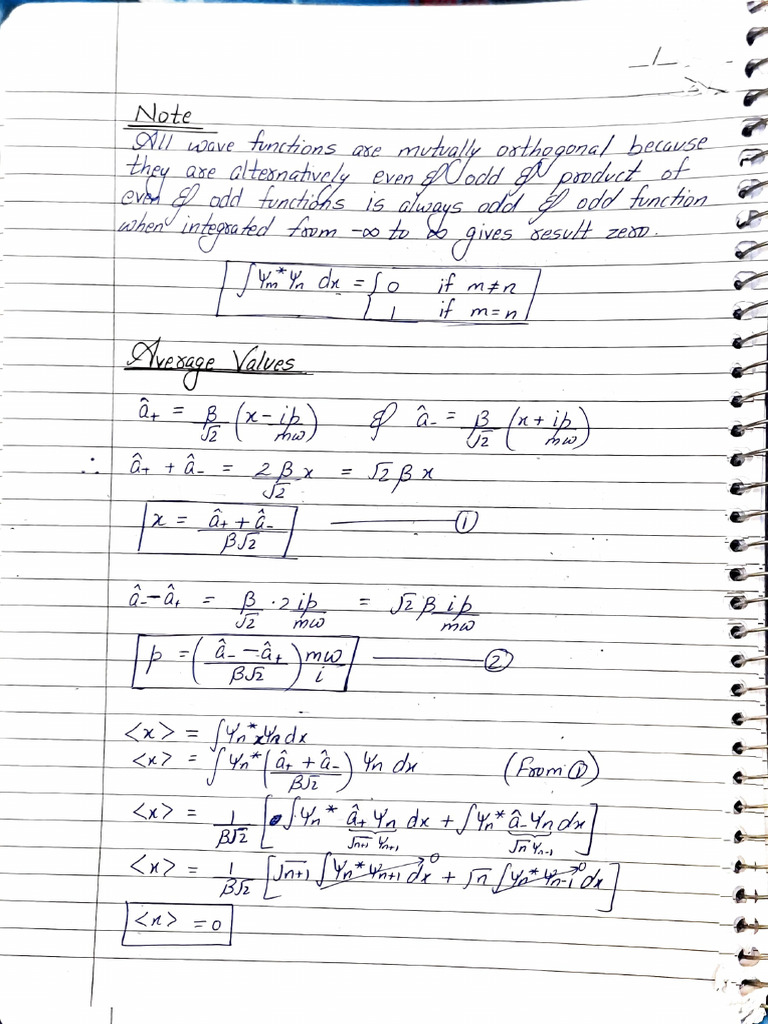 Note
All wave functions are mutually orthogonal because
they are alternatively even & odd & product of
even & odd functions is always odd & odd function
when integrated from -∞ to ∞ gives result zero.
∫ψm*ψn dx = { 0 if m≠n
1 if m=n
Average Values
â₊ = β/√2 (x - ip/mω) & â₋ = β/√2 (x + ip/mω)
∴ â₊ + â₋ = 2β/√2 x = √2 β x
x = (â₊ + â₋)/(β√2) ——— ①
â₋ - â₊ = β/√2 · 2ip/mω = √2 β ip/mω
p = ((â₋ - â₊)/(β√2)) mω/i ——— ②
<x> = ∫ψn* x ψn dx
<x> = ∫ψn* ((â₊ + â₋)/(β√2)) ψn dx (From ①)
<x> = 1/(β√2) [∫ψn* â₊ψn dx + ∫ψn* â₋ψn dx]
√n+1 ψn+1 √n ψn-1
<x> = 1/(β√2) [√n+1 ∫ψn* ψn+1 dx → 0 + √n ∫ψn* ψn-1 dx → 0]
<x> = 0